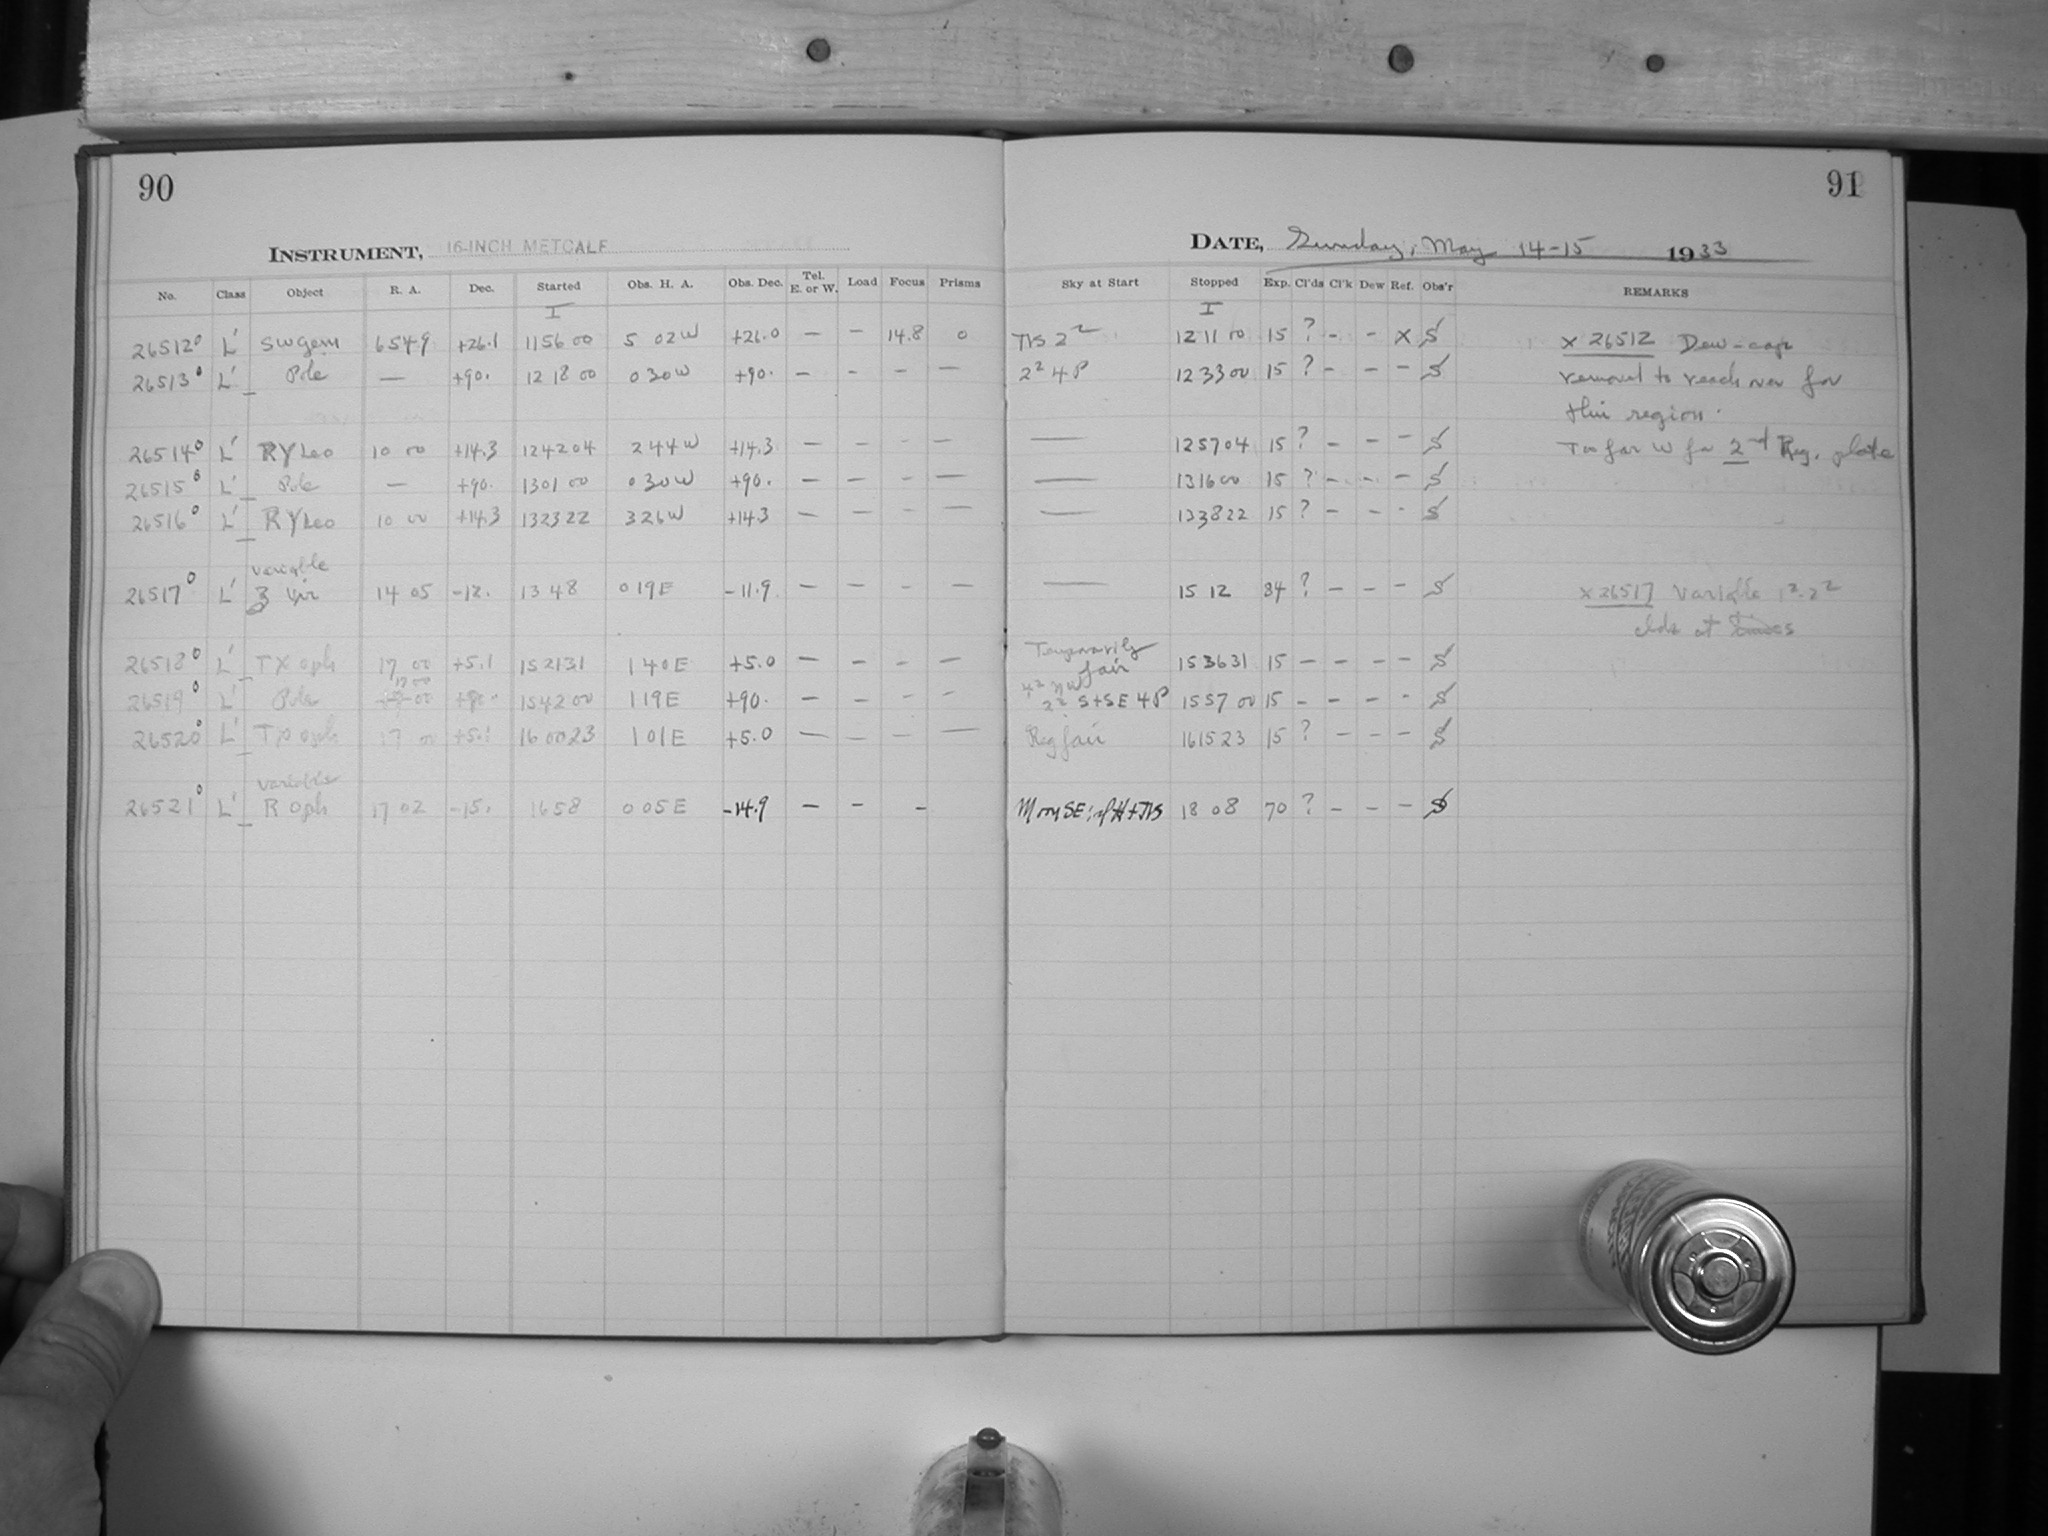 90
91
INSTRUMENT, 16-INCH METCALF
DATE, Sunday, May 14-15 1933
No. Class Object R. A. Dec. Started Obs. H. A. Obs. Dec. Tel. E. or W. Load Focus Prisms Sky at Start Stopped Exp. Cl'ds Cl'k Dew Ref. Obs'r REMARKS
I I
26512° L' SW Gem 6 54.9 +26.1 11 56 00 5 02 W +26.0 — — 14.8 0 2² 12 11 00 15 ? - - X S x 26512 Dew-cap
26513° L' Pole — +90. 12 18 00 0 30 W +90. — — — — 2² 4P 12 33 00 15 ? - - - S removed to reach over for
this region.
26514° L' RY Leo 10 00 +14.3 12 42 04 2 44 W +14.3 — — - — — 12 57 04 15 ? - - - S Too far W for 2nd Reg. plate
26515° L' Pole — +90. 13 01 00 0 30 W +90. — — — — — 13 16 00 15 ? - - - S
26516° L' RY Leo 10 00 +14.3 13 23 22 3 26 W +14.3 — — - — — 13 38 22 15 ? - - - S
variable
26517° L' Vir 14 05 -12. 13 48 0 19 E -11.9 — — - — — 15 12 84 ? - - - S x 26517 Variable 1²-2²
clds at times
Temporarily
26518° L' TX Oph 17 00 +5.1 15 21 31 1 40 E +5.0 — — - — fair 15 36 31 15 - - - - S
17 00
26519° L' Pole +90. 15 42 00 1 19 E +90. — — - - 2² S+SE 4P 15 57 00 15 - - - - S
26520° L' TX Oph 17 00 +5.1 16 00 23 1 01 E +5.0 — — - — Reg fair 16 15 23 15 ? - - - S
variable
26521° L' R Oph 17 02 -15. 16 58 0 05 E -14.9 — — - Moon SE; 18 08 70 ? - - - S